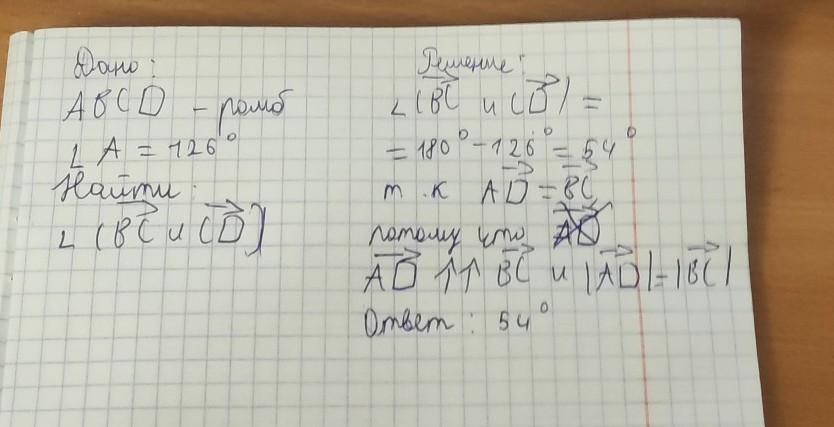 Дано:
ABCD - ромб
∠ A = 126°
Найти:
∠ (BC и CD)
Решение:
∠ (BC и CD) =
= 180° - 126° = 54°
т.к AD = BC
потому что AD
AD ↑↑ BC и |AD| = |BC|
Ответ: 54°